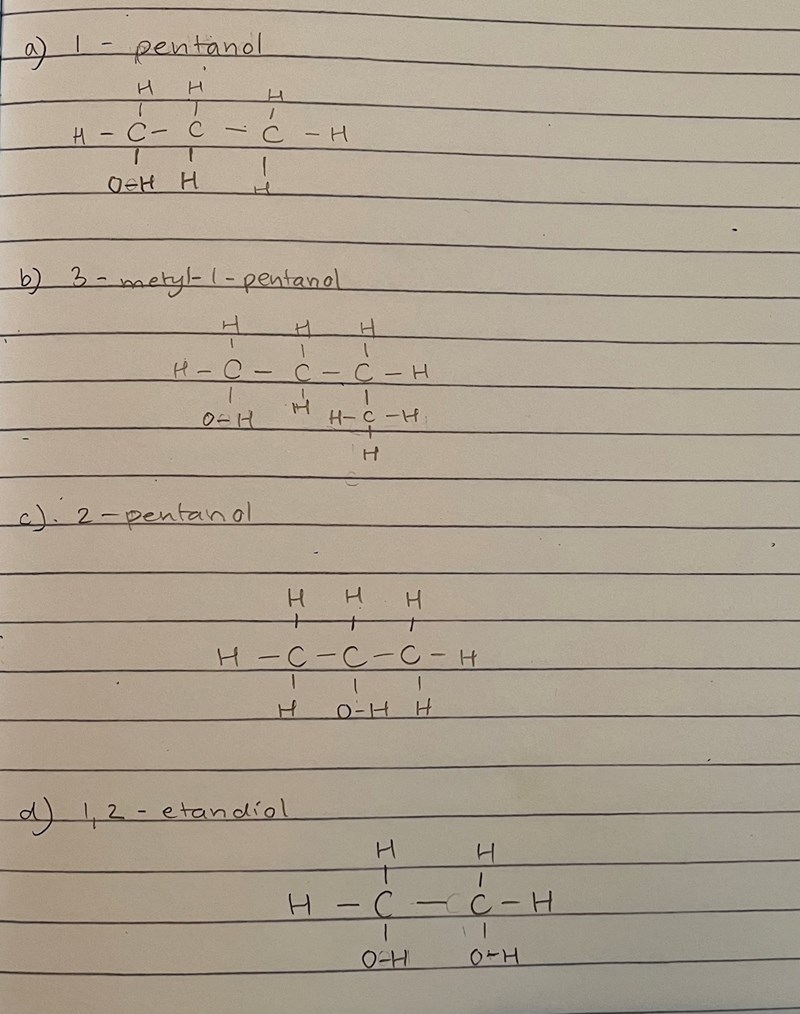 a) 1 - pentanol
H H H
H - C - C - C - H
O-H H H
b) 3 - metyl-1-pentanol
H H H
H - C - C - C - H
O-H H H-C-H
H
c). 2-pentanol
H H H
H - C - C - C - H
H O-H H
d) 1,2 - etandiol
H H
H - C - C - H
O-H O-H